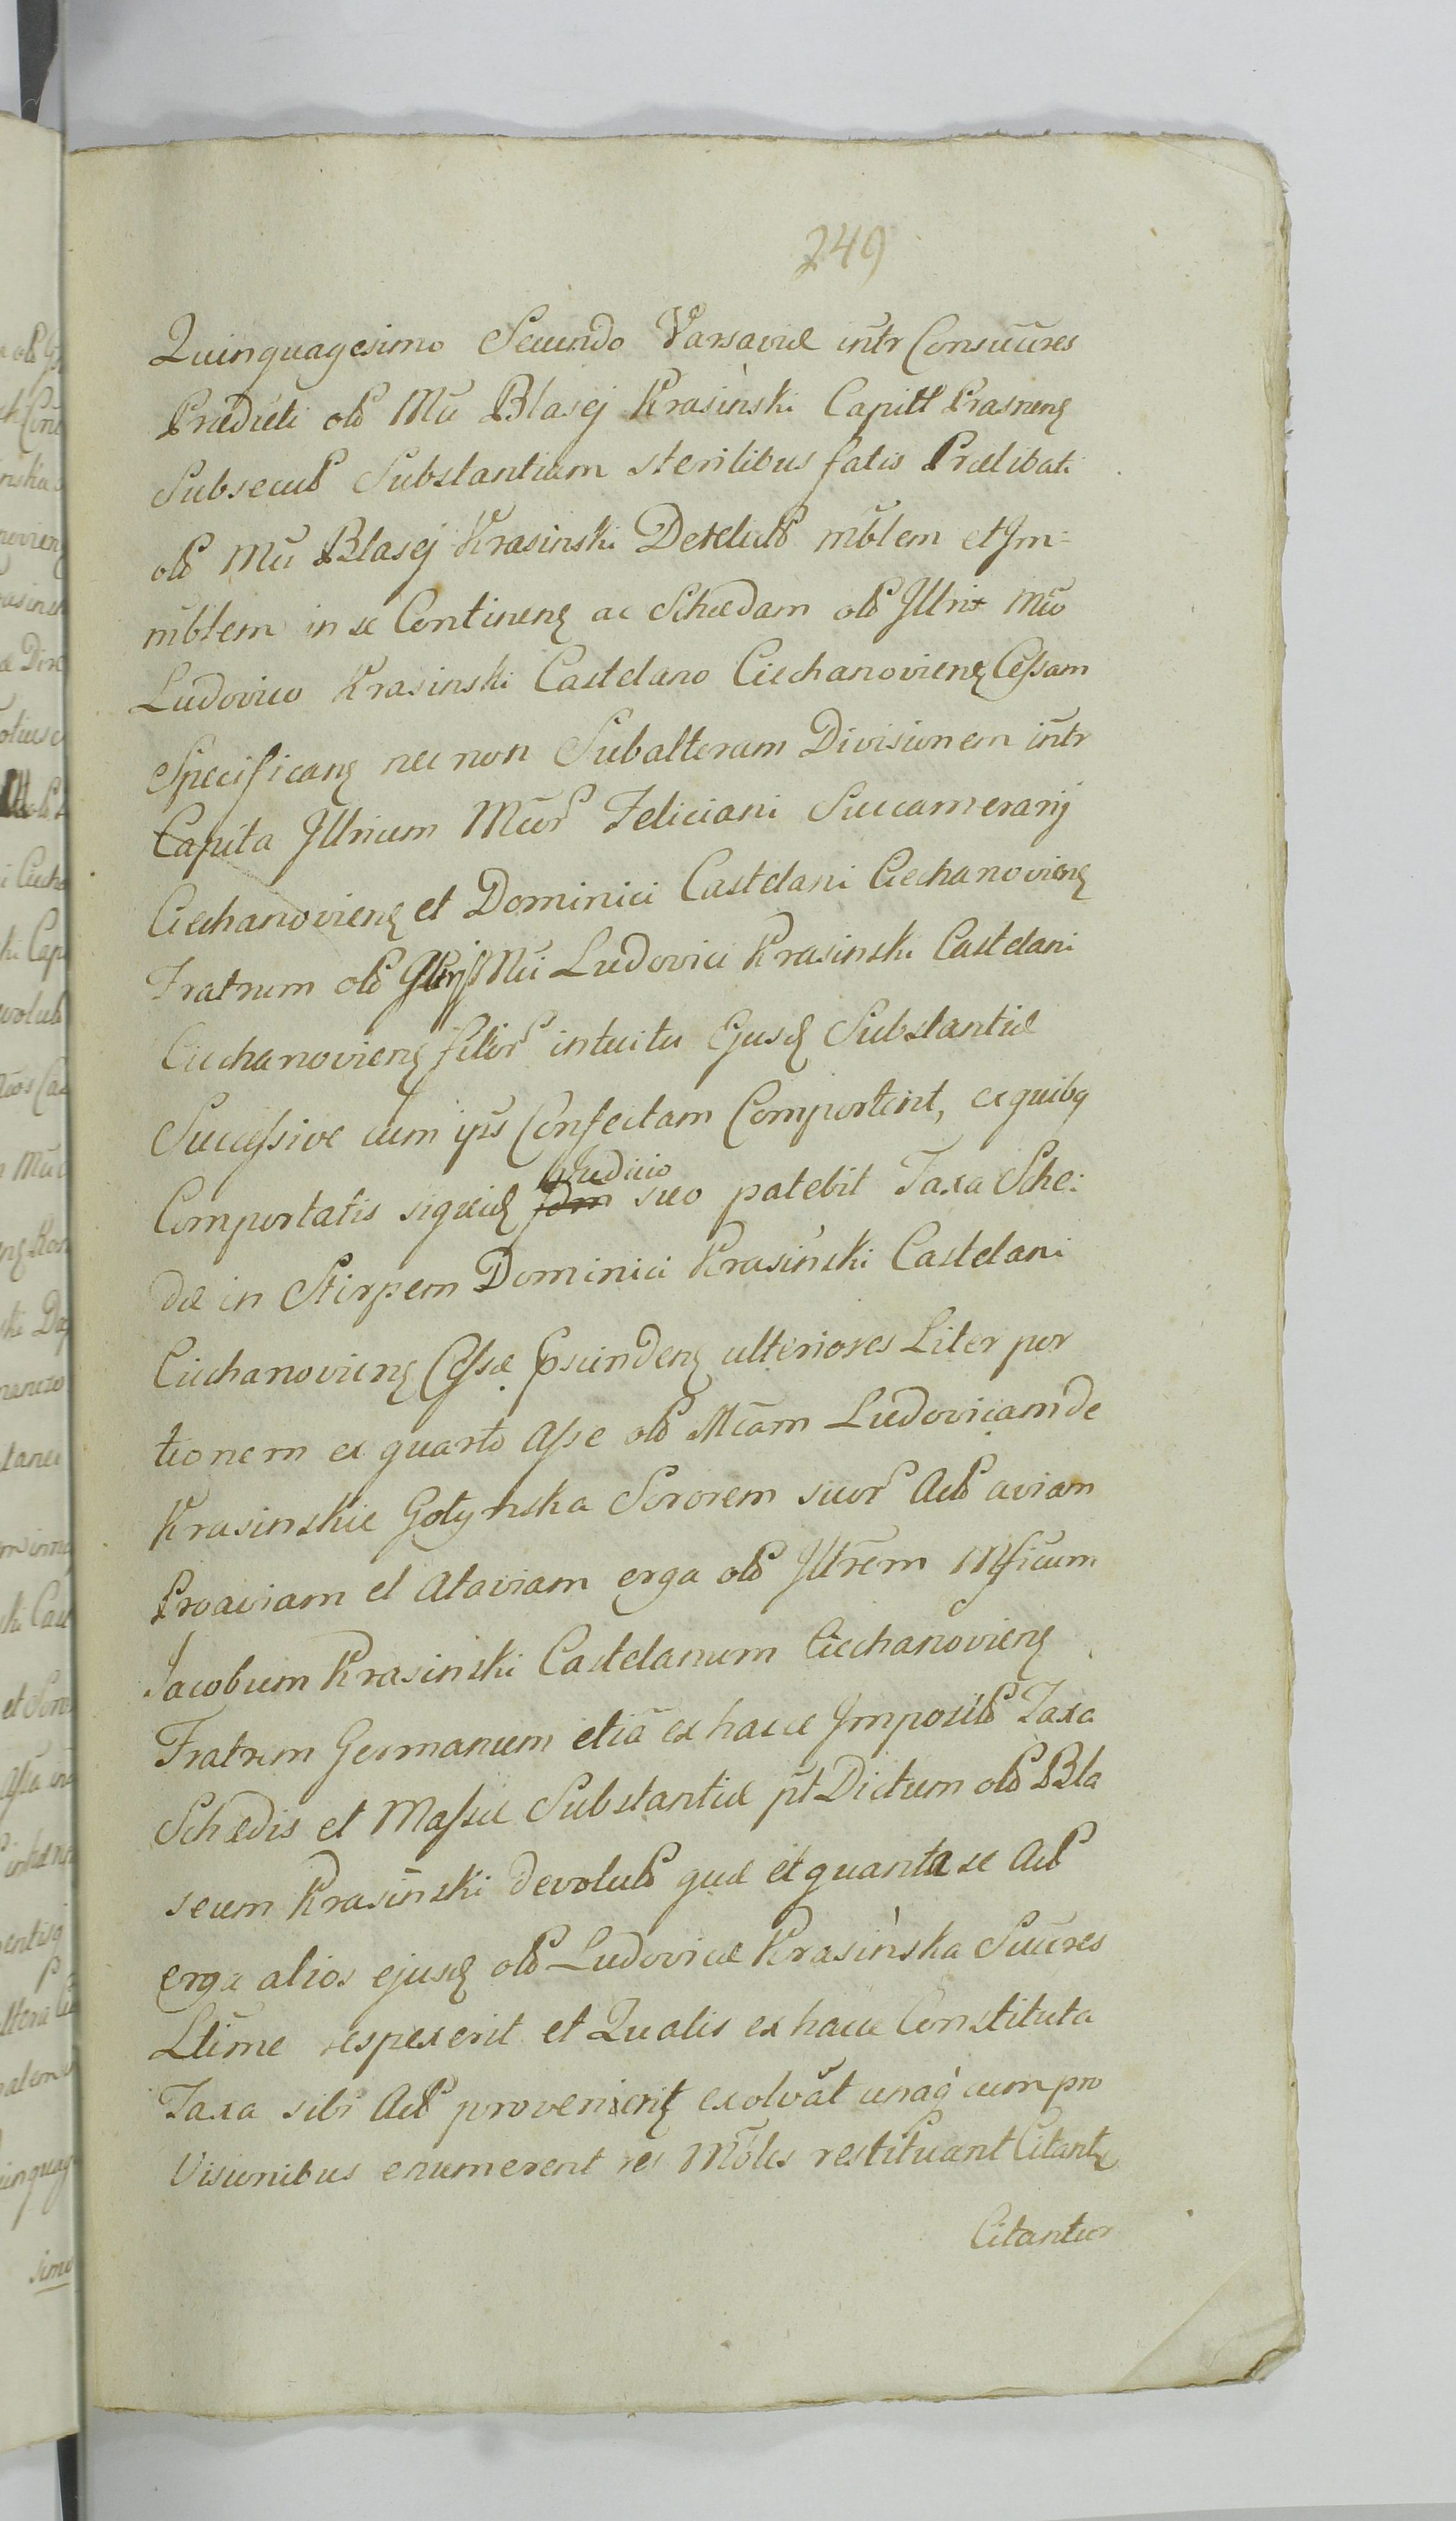 249
Quinquagesimo Secundo Varsaviæ intr Consuures
Prædicti olb Mci Blasej Krasinski Capitt Prasnenę
Subsecub Substantiam sterilibus fatis Prælibati
olb Mci Blasej Krasinski Derelictb mblem et Jm=
mblem in se Continenę ac Schedam olb Jllri Mco
Ludovico Krasinski Castelano Ciechanovienę Cessam
Specificanę nec non Subalteram Divisionem intr
Capita Jllrium Mcor Feliciani Succamerarij
Ciechanovienę et Dominici Castelani Ciechanovienę
Fratrum olb Mci Ludovici Krasinski Castelani
Ciechanovienę filior intuitu Ejusd Substantiæ
Successive cum ips Confectam Comportent, ex quibq
Comportatis siquid Judicio suo patebit Taxa Sche=
dæ in Stirpem Dominici Krasinski Castelani
Ciechanovienę Cessæ ulteriores Liter por
tionem ex quarto Asse olb Mcam Ludovicam de
Krasinskie Gotynska Sororem suor Actb aviam
Proaviam et Ataviam erga olb Jllrem Mficum
Jacobum Krasinski Castelanum Ciechanovienę
Fratrem Germanum etiã ex hacce Jmposib Taxa
Schedis et Massæ Substantiæ pt Dictum olb Bla
seum Krasinski devolub quæ et quanta se Actb
erga alios ejusd olb Ludovicæ Krasinska Suures
Ltime respexerit et Qualis ex hacce Constituta
Taxa sibi Actb provenient exolvãt unaq cum pro
Visionibus enumerent res Mobles restituant Citant
Citantur